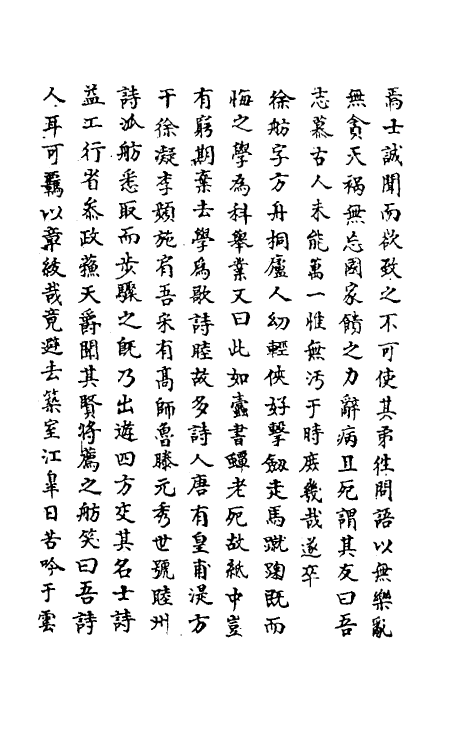 焉士誠聞而欲致之不可使其弟徃問語以無樂亂
無貪天禍無忘國家饋之力辭病且死謂其友曰吾
志慕古人未能萬一惟無汚于時庶幾哉遂卒
徐舫字方舟桐廬人幼輕俠好擊劔走馬蹴踘既而
悔之學為科舉業又曰此如蠧書蟬老死故紙中豈
有窮期棄去學為歌詩睦故多詩人唐有皇甫湜方
干徐凝李頻施肩吾宋有高師魯滕元秀世號睦州
詩派舫悉取而步驟之既乃出遊四方交其名士詩
益工行省叅政蘓天爵聞其賢將薦之舫笑曰吾詩
人耳可羈以章紱哉竟避去築室江皐日苦吟于雲